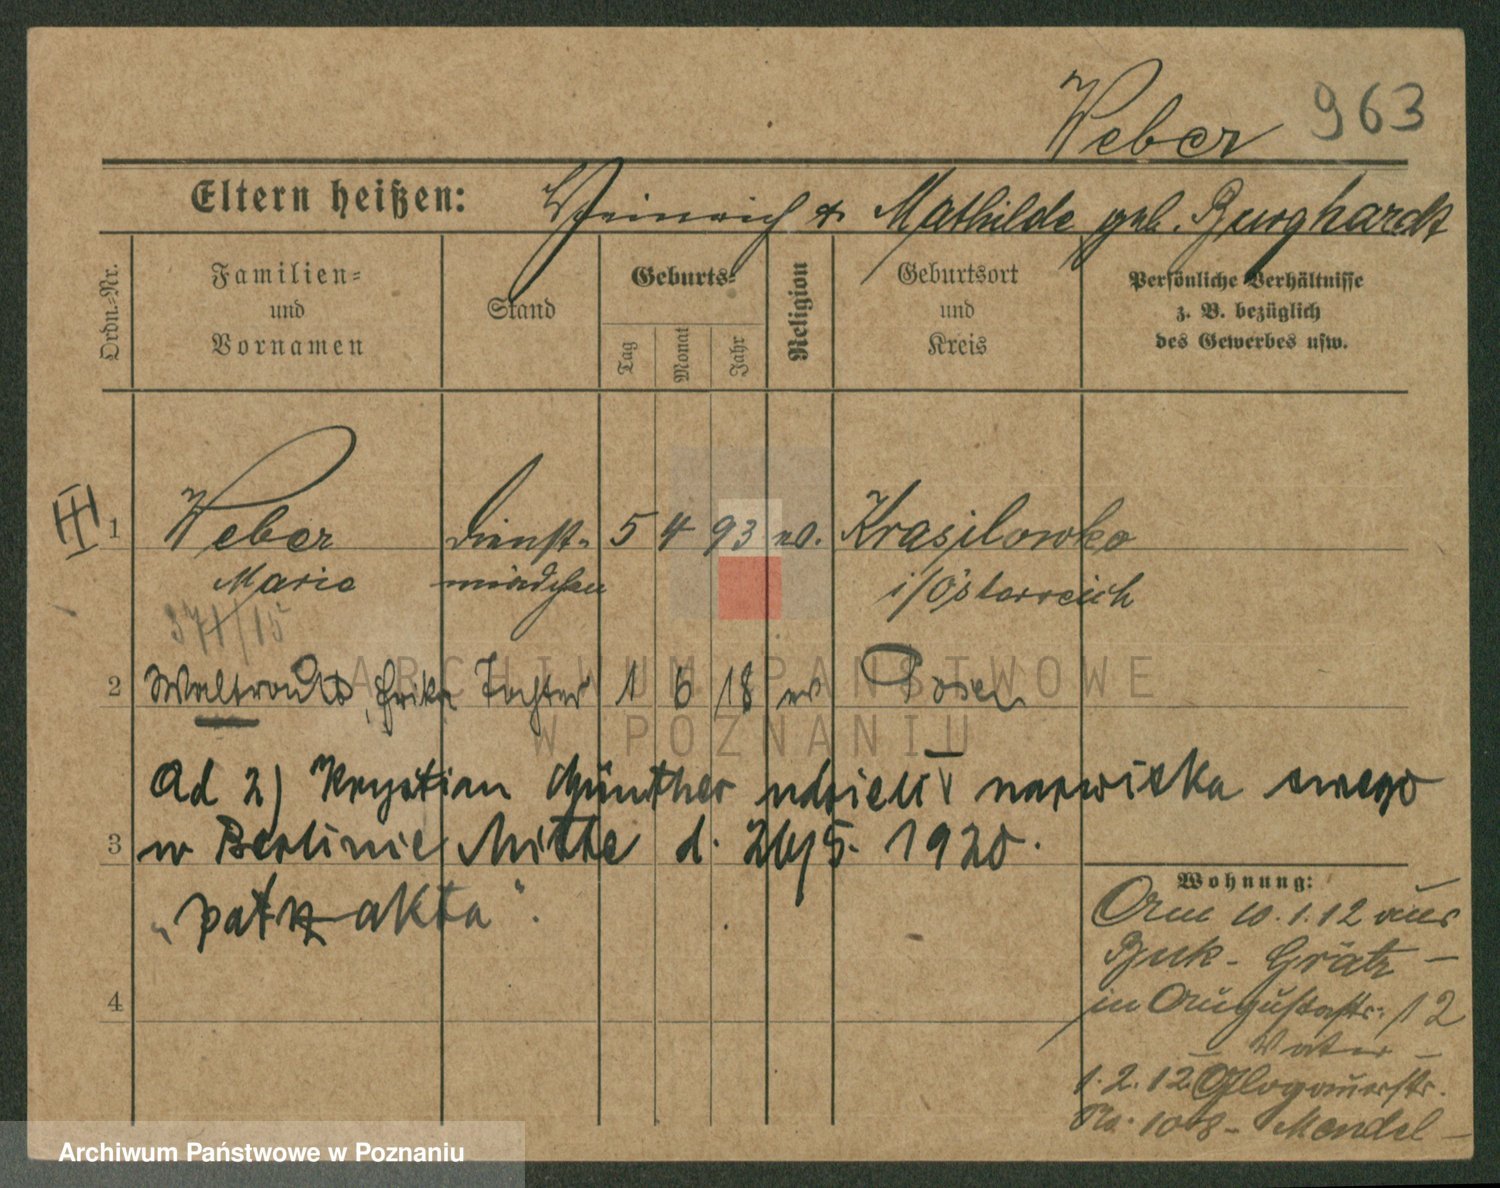 Weber 963
Eltern heißen: Heinrich & Mathilde geb. Burghardt
Ordn.-Nr.
Familien=
und
Vornamen
Stand
Geburts=
Tag
Monat
Jahr
Religion
Geburtsort
und
Kreis
Persönliche Verhältnisse
z. B. bezüglich
des Gewerbes usw.
III
1 Weber Dienst- 5 4 93 ev. Krasilowka
Marie mädchen i/Österreich
371/15
2 Waltraut, Erika Tochter 1 6 18 ev Posen
Ad 2) Krystian Günther udzielił nazwiska swego
3 w Berlinie Mitte d. 26/5. 1920.
„patrz akta".
4
Wohnung:
Am 10.1.12 aus
Buk - Grätz -
in Augustastr. 12
- Vater -
1.2.12 Glogauerstr.
No. 108 - Mendel -
ARCHIWUM PAŃSTWOWE
W POZNANIU
Archiwum Państwowe w Poznaniu